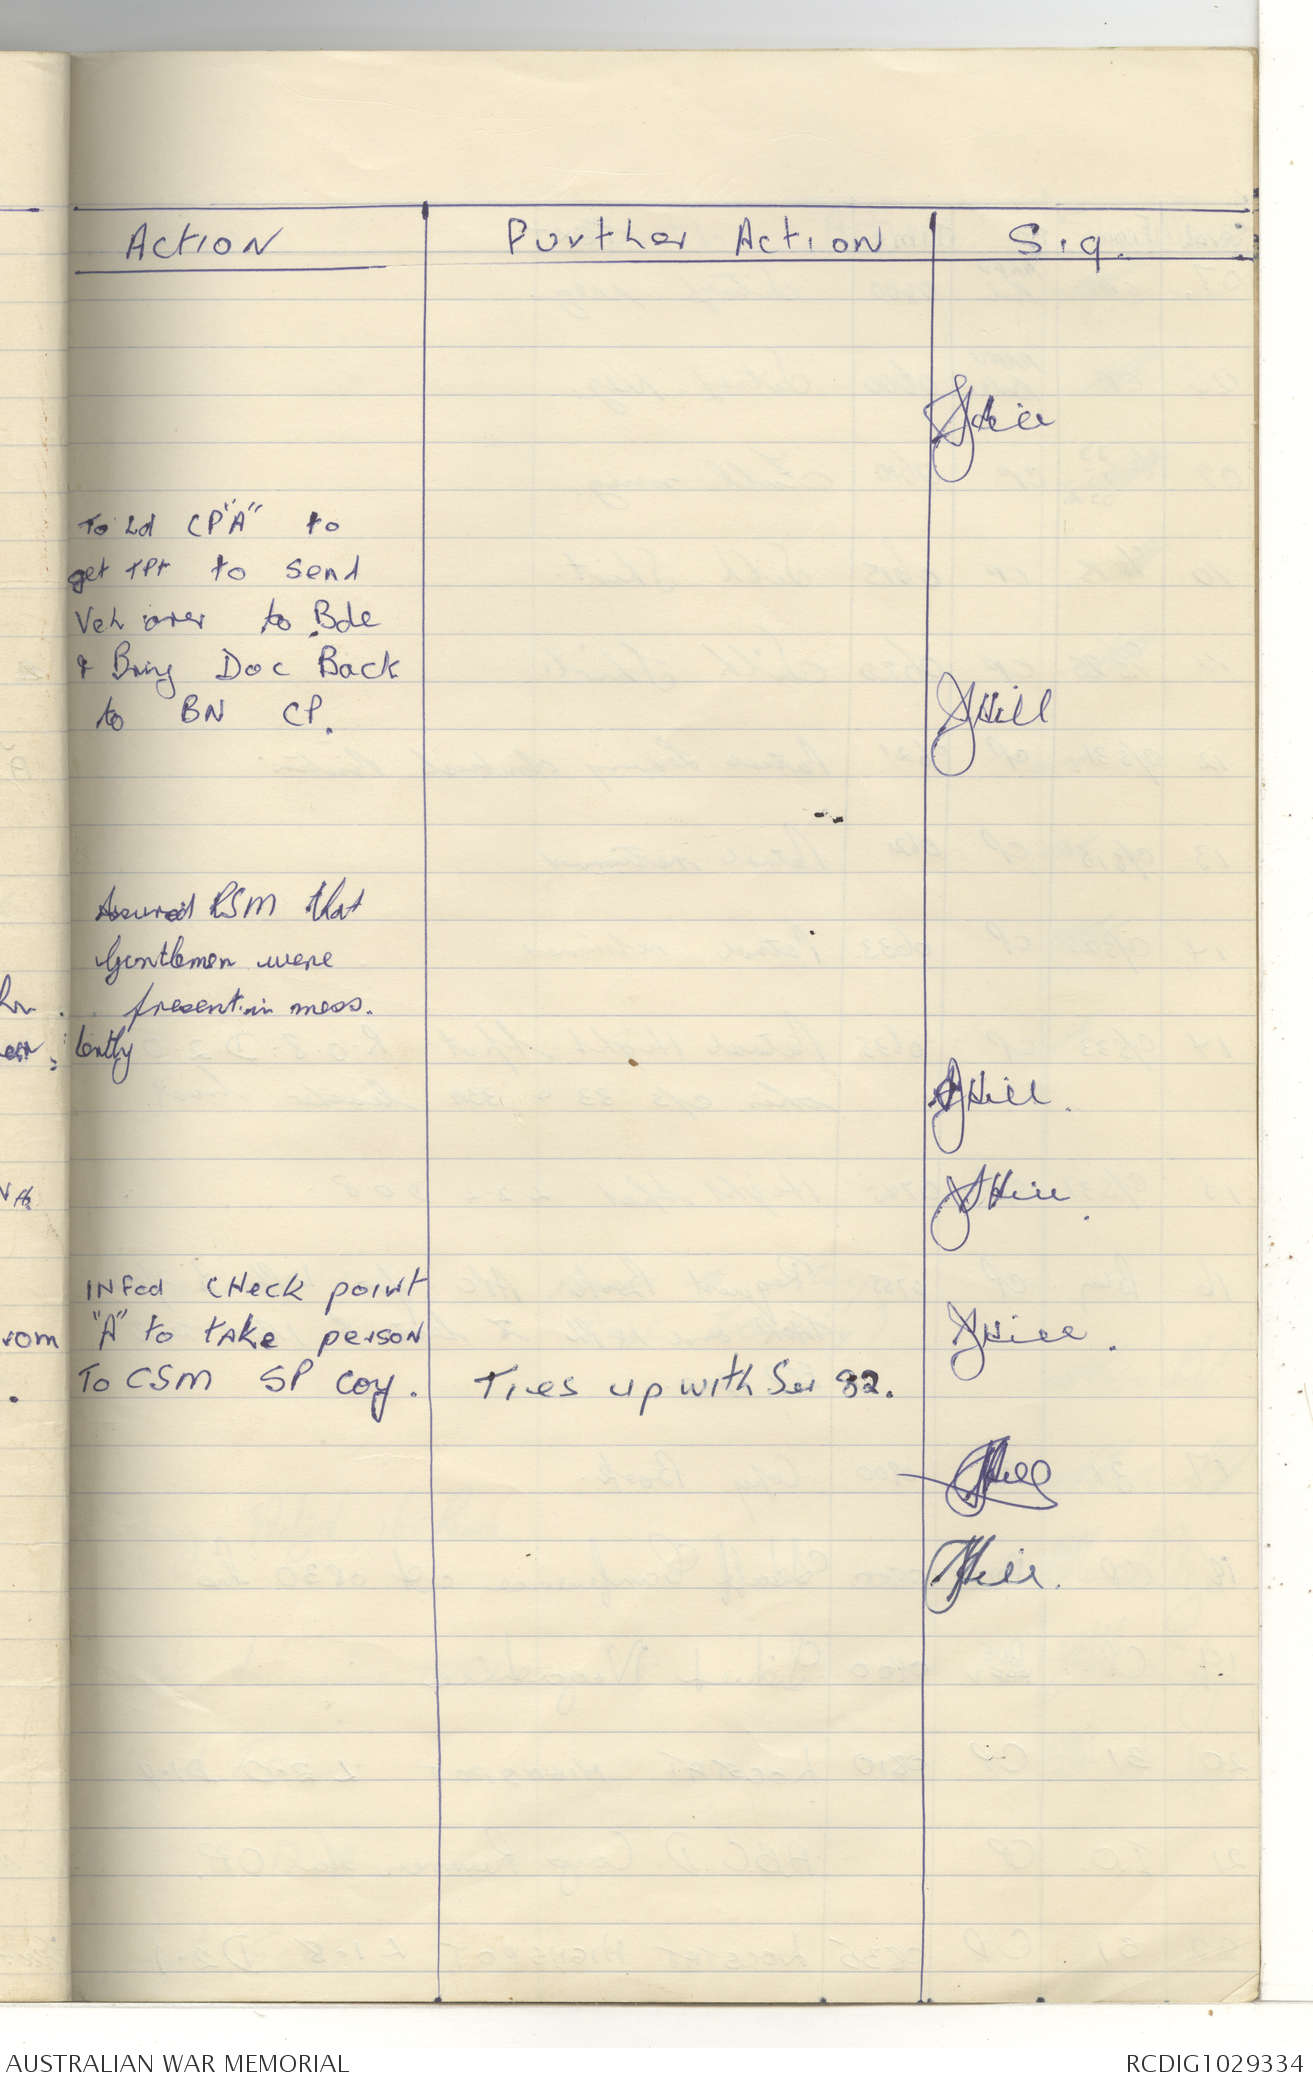 Action Further Action Sig.
JHill
To Ld CP "A" to
get TPt to send
Veh over to Bde
& Bring Doc Back
to BN CP.
JHill
Assured RSM that
Gentlemen were
present in mess.
ently
JHill.
JHill.
INFed CHeck point
rom "A" to take person
JHill.
To CSM SP coy. Ties up with Ser 82.
JHill
JHill.
AUSTRALIAN WAR MEMORIAL RCDIG1029334